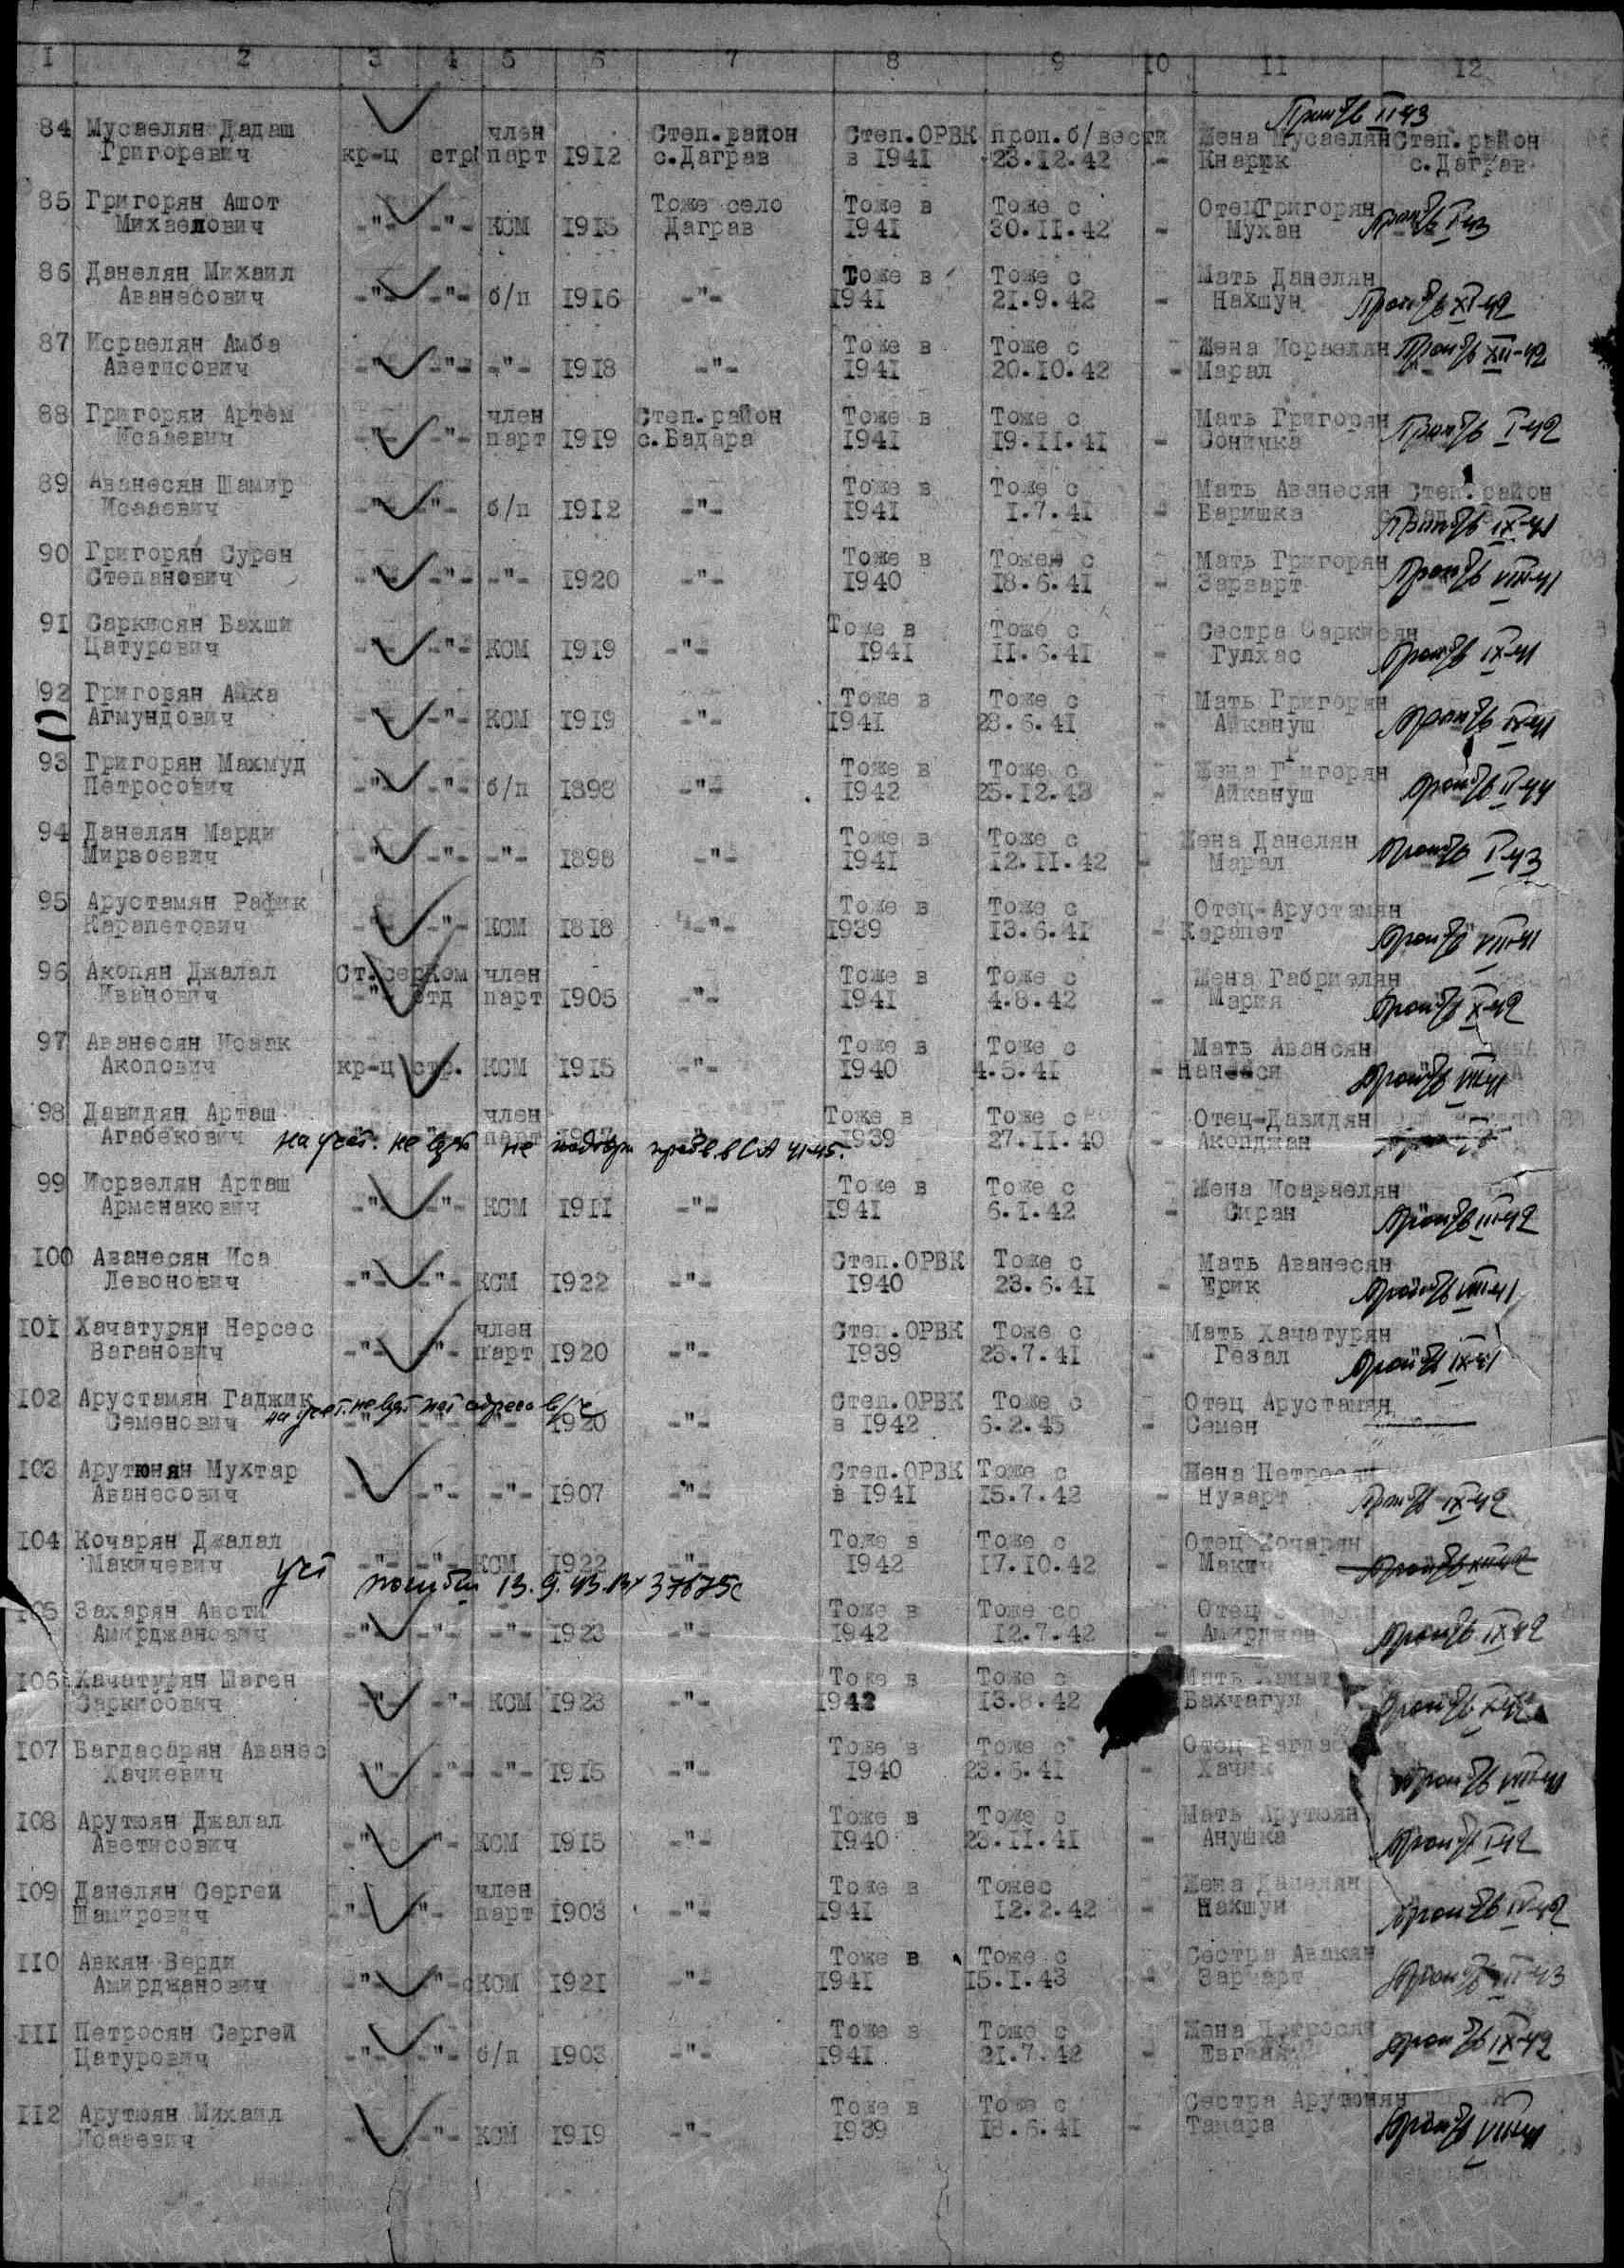 1 2 3 4 5 6 7 8 9 10 11 12
Проп б/в II-43
84 Мусаелян Дадаш член Степ.район Степ.ОРВК проп.б/вести Жена Мусаелян Степ.район
Григоревич кр-ц стр. парт 1912 с.Даграв в 1941 23.12.42 - Кнарик с.Даграв
85 Григорян Ашот Тоже село Тоже в Тоже с Отец Григорян
Михаелович -"- -"- КСМ 1915 Даграв 1941 30.11.42 - Мухан Проп б/в I-43
86 Данелян Михаил Тоже в Тоже с Мать Данелян
Аванесович -"- -"- б/п 1916 -"- 1941 21.9.42 - Нахшун Проп б/в XI-42
87 Исраелян Амба Тоже в Тоже с Жена Исраелян Проп б/в XII-42
Аветисович -"- -"- -"- 1918 -"- 1941 20.10.42 - Марал
88 Григорян Артем член Степ.район Тоже в Тоже с Мать Григорян
Исаевич -"- -"- парт 1919 с.Бадара 1941 19.11.41 - Соничка Проп б/в I-42
89 Аванесян Шамир Тоже в Тоже с Мать Аванесян Степ.район
Исаевич -"- -"- б/п 1912 -"- 1941 1.7.41 - Варишка
Проп б/в IX-41
90 Григорян Сурен Тоже в Тоже с Мать Григорян
Степанович -"- -"- -"- 1920 -"- 1940 18.6.41 - Зарварт Проп б/в VIII-41
91 Саркисян Бахши Тоже в Тоже с Сестра Саркисян
Цатурович -"- -"- КСМ 1919 -"- 1941 11.6.41 - Гулхас Проп б/в IX-41
92 Григорян Айка Тоже в Тоже с Мать Григорян
Агмундович -"- -"- КСМ 1919 -"- 1941 28.6.41 - Айкануш Проп б/в IX-41
93 Григорян Махмуд Тоже в Тоже с Жена Григорян
Петросович -"- -"- б/п 1898 -"- 1942 25.12.43 - Айкануш Проп б/в II-44
94 Данелян Марди Тоже в Тоже с Жена Данелян
Мирзоевич -"- -"- -"- 1898 -"- 1941 12.11.42 - Марал Проп б/в I-43
95 Арустамян Рафик Тоже в Тоже с Отец-Арустамян
Карапетович -"- -"- КСМ 1818 -"- 1939 13.6.41 - Карапет Проп б/в VIII-41
96 Акопян Джалал Ст.сер Ком член Тоже в Тоже с Жена Габриелян
Иванович -"- отд парт 1905 -"- 1941 4.8.42 - Мария Проп б/в X-42
97 Аванесян Исаак Тоже в Тоже с Мать Авансян
Акопович кр-ц стр. КСМ 1915 -"- 1940 4.5.41 - Проп б/в VIII-41
98 Давидян Арташ член Тоже в Тоже с Отец-Давидян
Агабекович парт 1939 27.11.40 - Акопджан
на учет. не взят не подтвер. в СА 41-45.
99 Исраелян Арташ Тоже в Тоже с Жена Исараелян
Арменакович -"- -"- КСМ 1911 -"- 1941 6.1.42 - Сиран Проп б/в III-42
100 Аванесян Иса Степ.ОРВК Тоже с Мать Аванесян
Левонович -"- -"- КСМ 1922 -"- 1940 23.6.41 - Ерик Проп б/в VIII-41
101 Хачатурян Нерсес член Степ.ОРВК Тоже с Мать Хачатурян
Ваганович -"- -"- парт 1920 -"- 1939 23.7.41 - Гезал Проп б/в IX-41
102 Арустамян Гаджик Степ.ОРВК Тоже с Отец Арустамян
на учет. не взят нет адреса в/ч
Семенович -"- -"- -"- 1920 -"- в 1942 6.2.45 - Семен
103 Арутюнян Мухтар Степ.ОРВК Тоже с Жена Петросян
Аванесович -"- -"- -"- 1907 -"- в 1941 15.7.42 - Нуварт Проп б/в IX-42
104 Кочарян Джалал Тоже в Тоже с Отец Кочарян
Макичевич -"- -"- КСМ 1922 -"- 1942 17.10.42 - Макич Проп б/в XII-42
учт погиб 13.9.43 вх 37675с
105 Захарян Австи Тоже в Тоже со Отец
Амирджанович -"- -"- -"- 1923 -"- 1942 12.7.42 - Амирджан Проп б/в IX-42
106 Хачатурян Шаген Тоже в Тоже с Мать
Саркисович -"- -"- КСМ 1923 -"- 1942 13.8.42 Бахчагул Проп б/в X-42
107 Багдасарян Аванес Тоже в Тоже с Отец
Хачиевич -"- -"- -"- 1915 -"- 1940 23.6.41 - Хачик Проп б/в VIII-41
108 Арутюян Джалал Тоже в Тоже с Мать Арутюян
Аветисович -"- -"- КСМ 1915 -"- 1940 23.11.41 - Анушка Проп б/в I-42
109 Данелян Сергей член Тоже в Тоже с Жена Данелян
Шамирович -"- -"- парт 1903 -"- 1941 12.2.42 - Нахшун Проп б/в IV-42
110 Авкян Верди Тоже в Тоже с Сестра Авакян
Амирджанович -"- -"- КСМ 1921 -"- 1941 15.1.43 - Зарварт Проп б/в III-43
111 Петросян Сергей Тоже в Тоже с Жена Петросян
Цатурович -"- -"- б/п 1903 -"- 1941 21.7.42 - Проп б/в IX-42
112 Арутюян Михаил Тоже в Тоже с Сестра Арутюнян
Исаевич -"- -"- КСМ 1919 -"- 1939 18.6.41 - Тамара Проп б/в VIII-41